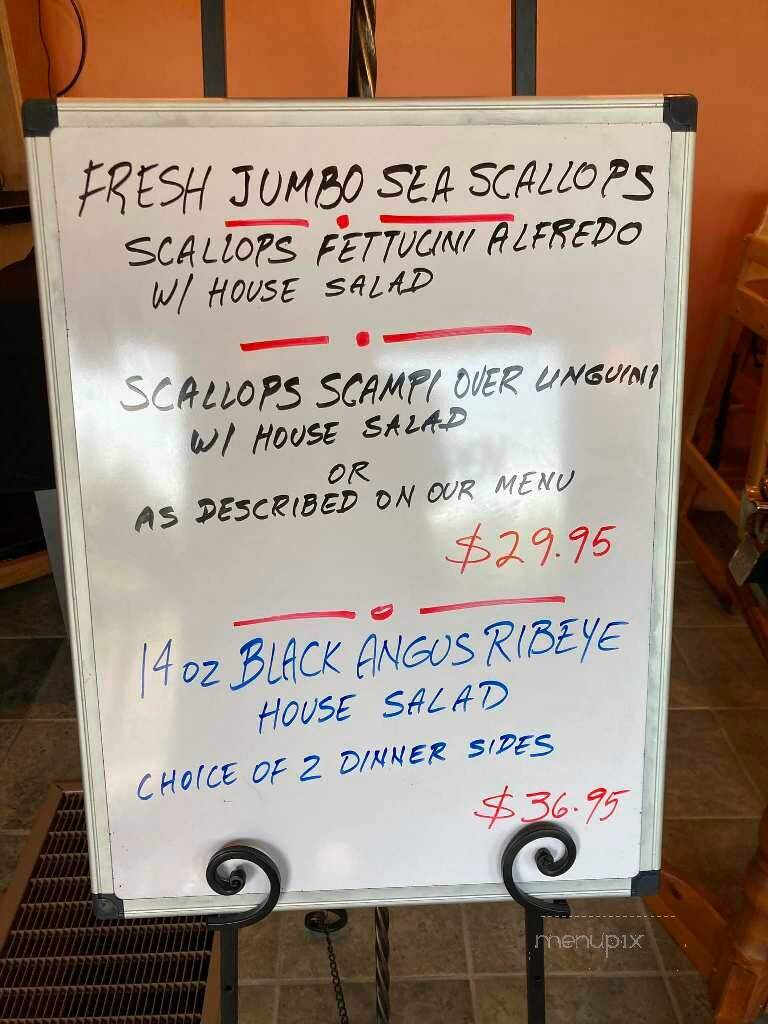 FRESH JUMBO SEA SCALLOPS
SCALLOPS FETTUCINI ALFREDO
W/ HOUSE SALAD
SCALLOPS SCAMPI OVER LINGUINI
W/ HOUSE SALAD
OR
AS DESCRIBED ON OUR MENU
$29.95
14 OZ BLACK ANGUS RIBEYE
HOUSE SALAD
CHOICE OF 2 DINNER SIDES
$36.95
menupix